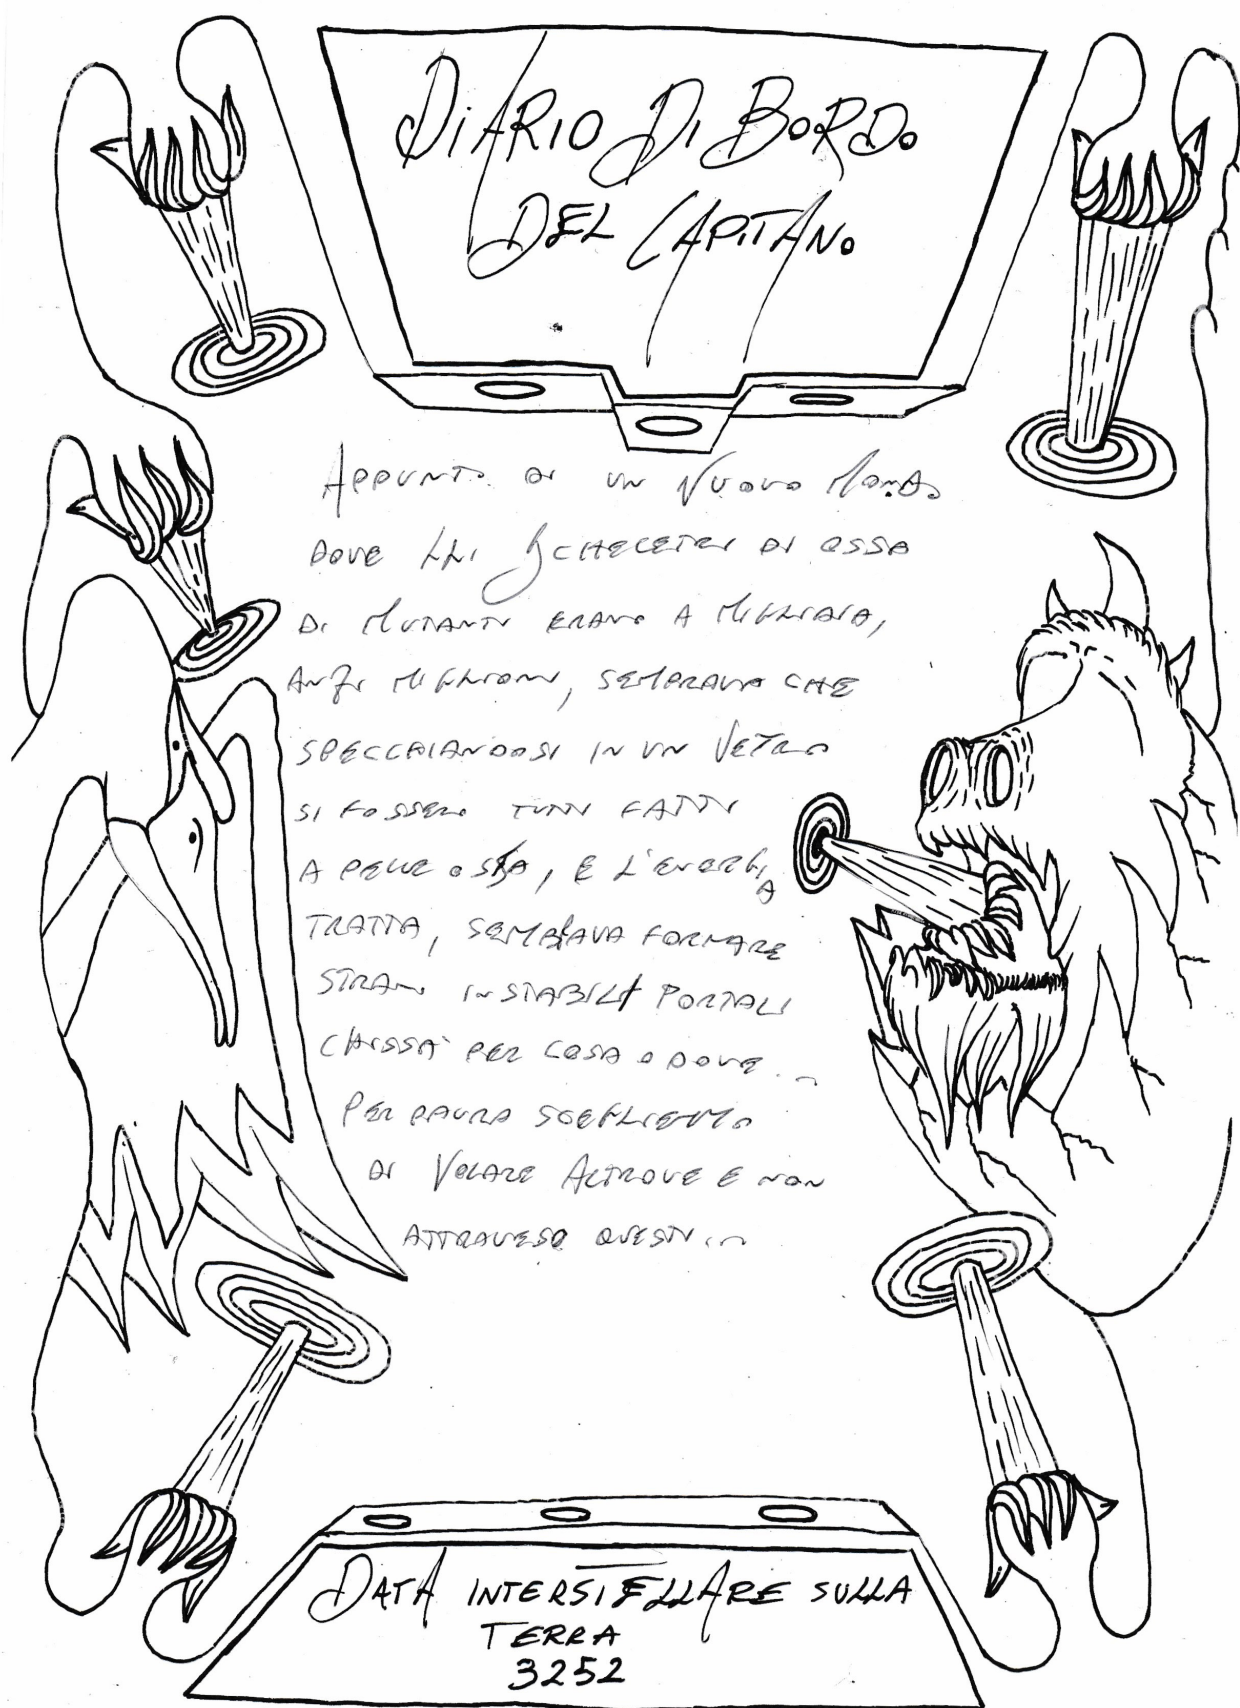 DIARIO DI BORDO
DEL CAPITANO
APPUNTO DI UN NUOVO MONDO
DOVE GLI SCHELETRI DI OSSA
DI MUTANTI ERANO A MIGLIAIA,
ANZI MIGLIONI, SEMBRAVA CHE
SPECCHIANDOSI IN UN VETRO
SI FOSSERO TUTTI FATTI
A PELLE OSSA, E L'ENERGIA
TRATTA, SEMBRAVA FORMARE
STRANI INSTABILI PORTALI
CHISSA' PER COSA O DOVE...
PER PAURA SCEGLIEMMO
DI VOLARE ALTROVE E NON
ATTRAVESO QUESTI...
DATA INTERSTELLARE SULLA
TERRA
3252